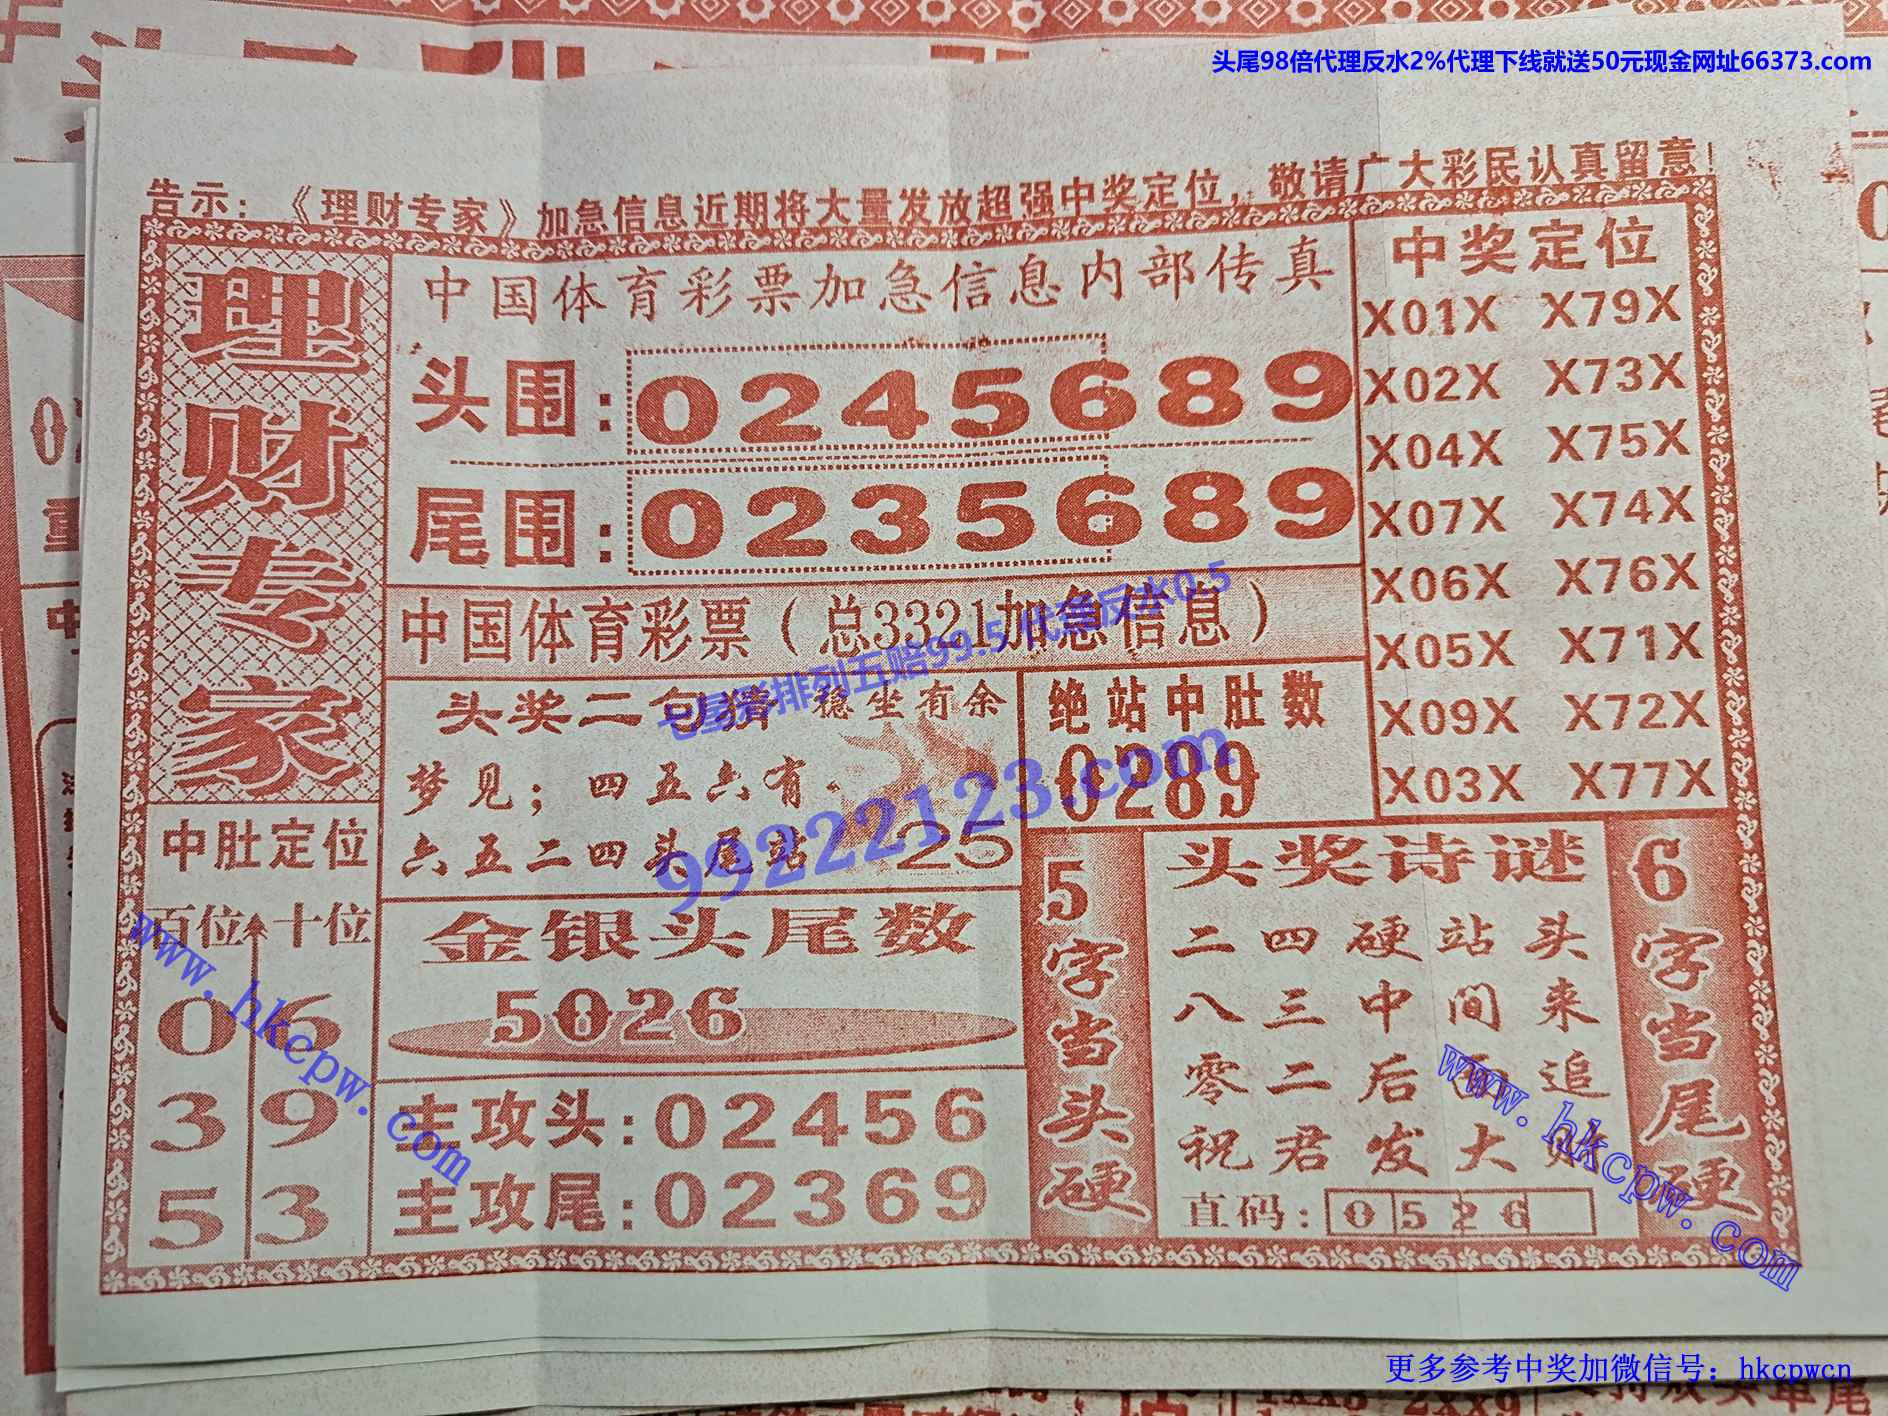 头尾98倍代理反水2%代理下线就送50元现金网址66373.com
告示：《理财专家》加急信息近期将大量发放超强中奖定位，敬请广大彩民认真留意！
理财专家
中国体育彩票加急信息内部传真
头围：0245689
尾围：0235689
中奖定位
X01X X79X
X02X X73X
X04X X75X
X07X X74X
X06X X76X
X05X X71X
X09X X72X
X03X X77X
中国体育彩票（总3321加急信息）
七星彩排列五赔99.5 代理反水0.5
99222123.com
头奖二句猜 稳坐有余
梦见；四五六有
六五二四头尾站 25
绝站中肚数
0289
中肚定位
百位 十位
0 6
3 9
5 3
金银头尾数
5026
主攻头：02456
主攻尾：02369
5字当头硬
头奖诗谜
二四硬站头
八三中间来
零二后 追
祝君发大财
直码：0526
6字当尾硬
www.hkcpw.com
www.hkcpw.com
更多参考中奖加微信号：hkcpwcn